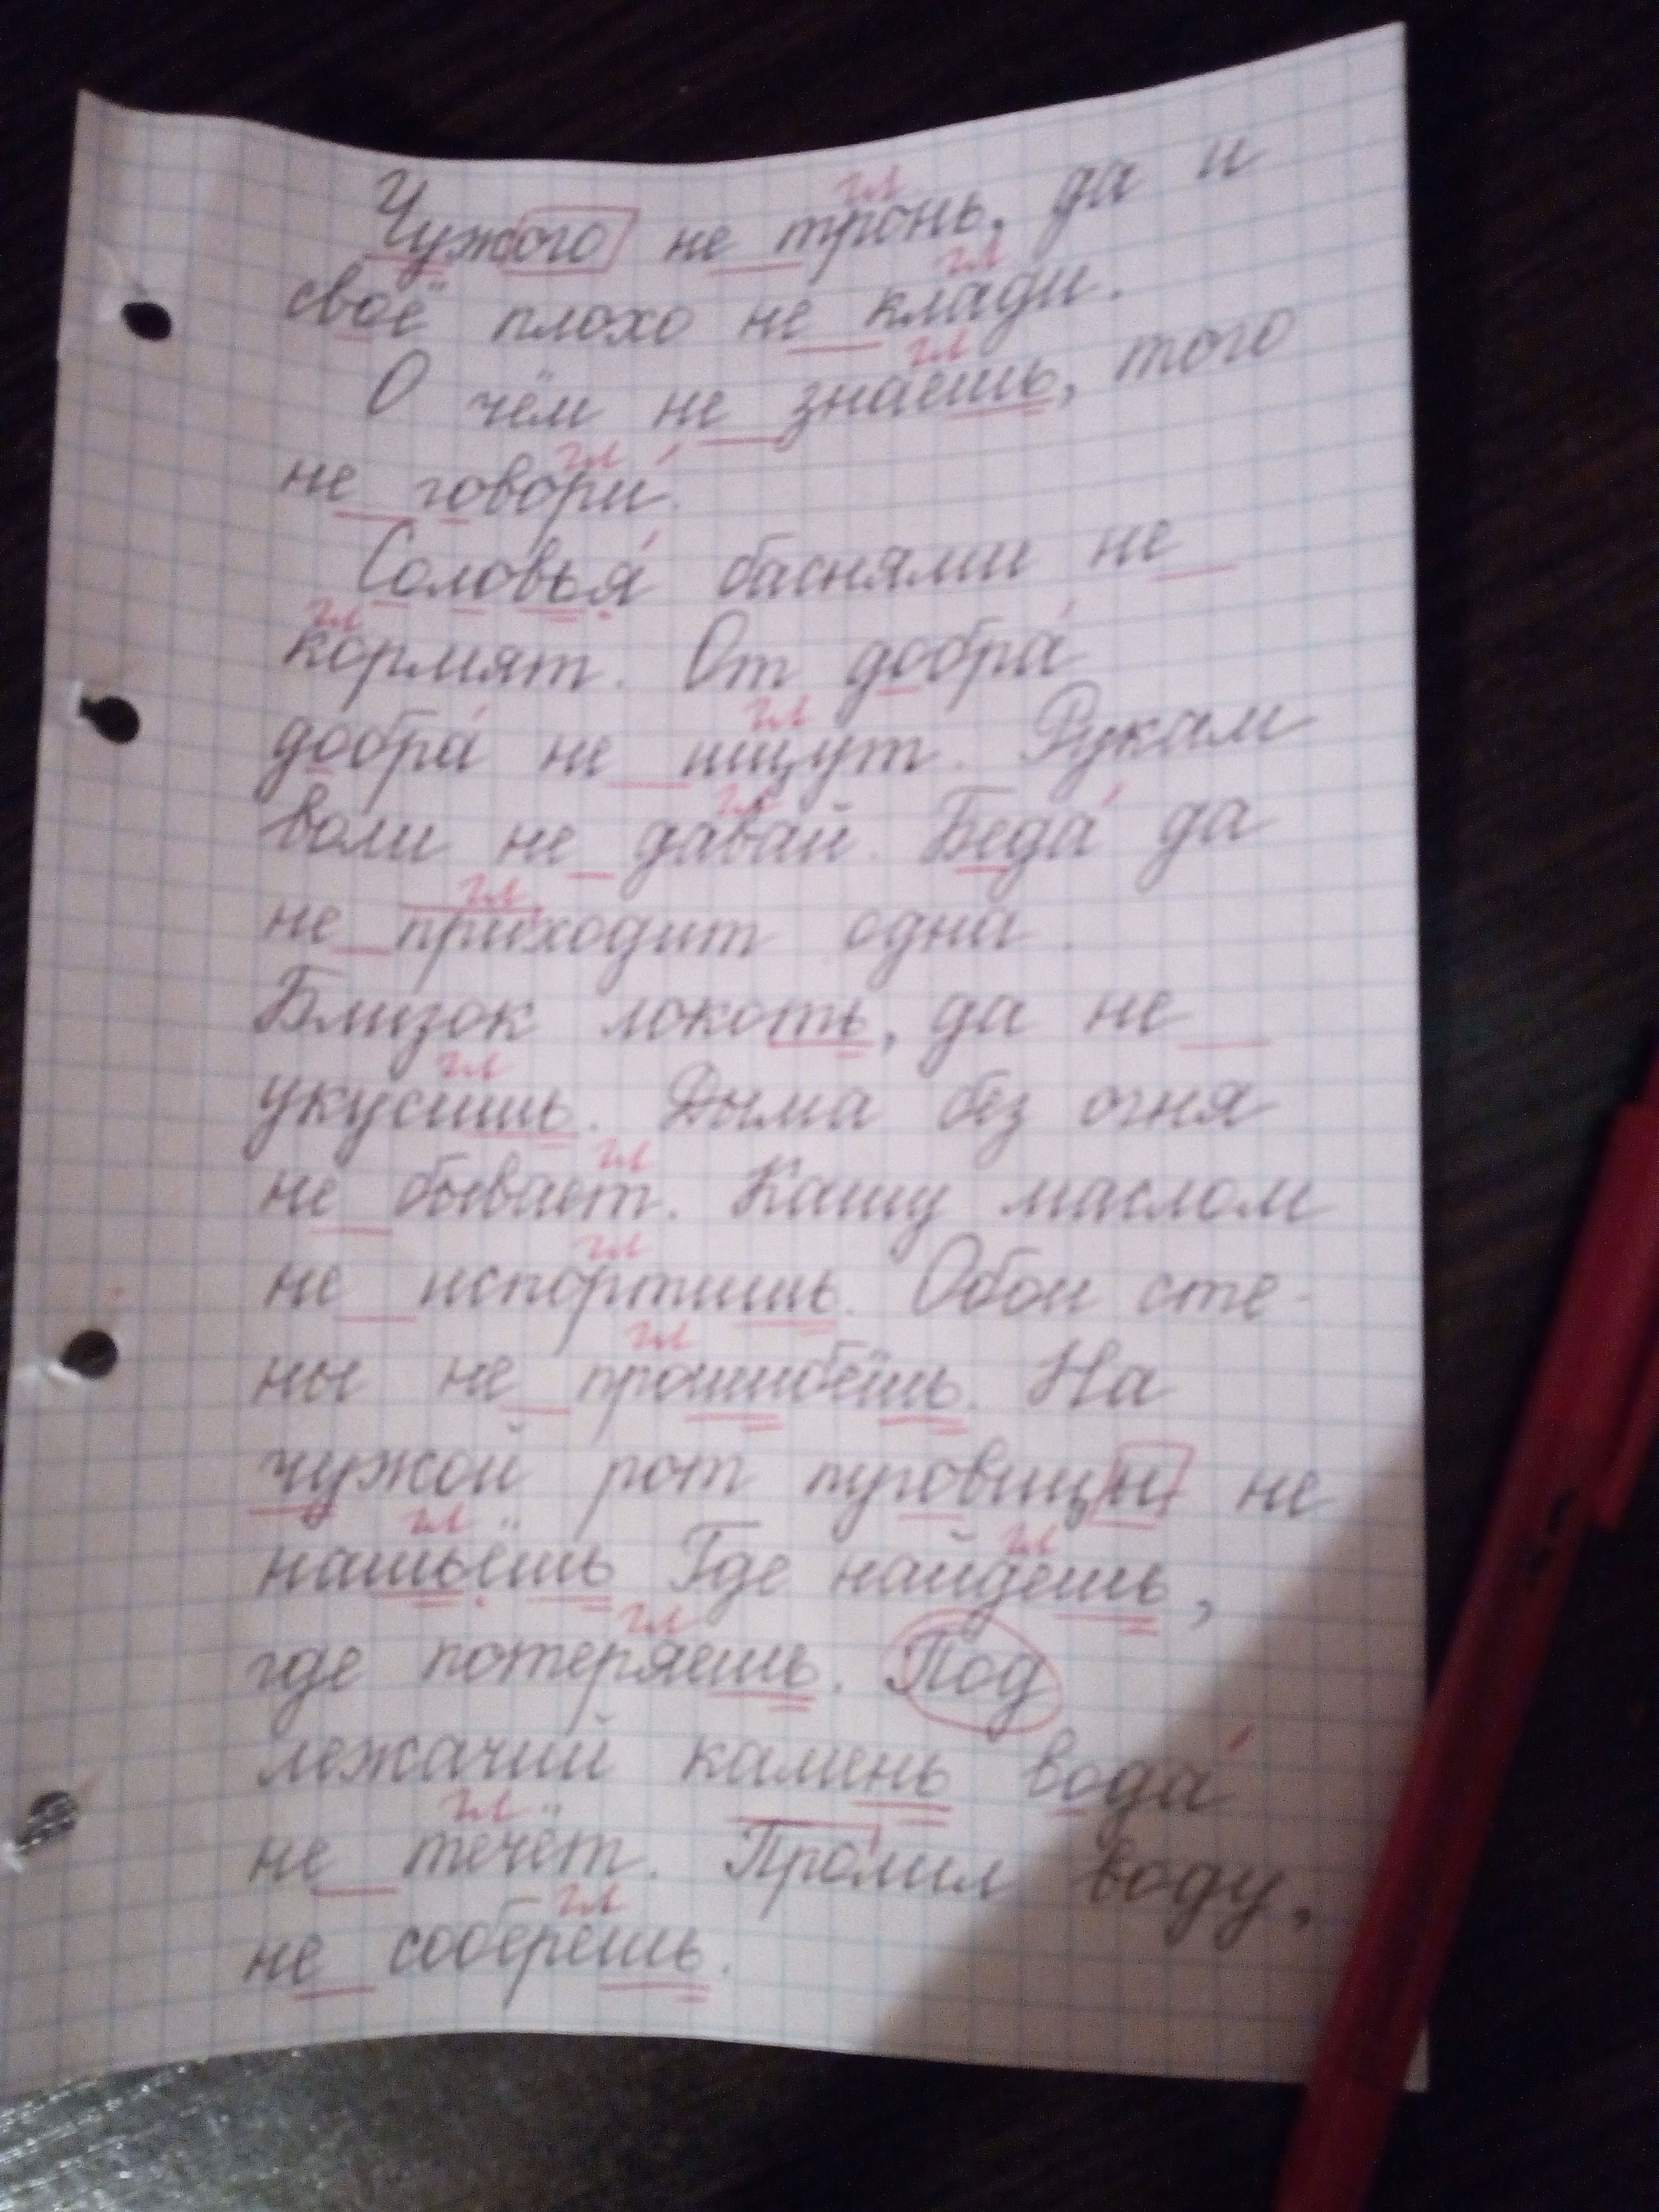 Чужого не тронь, да и
своё плохо не клади.
О чём не знаешь, того
не говори.
Соловья баснями не
кормят. От добра
добра не ищут. Рукам
воли не давай. Беда да
не приходит одна.
Близок локоть, да не
укусишь. Дыма без огня
не бывает. Кашу маслом
не испортишь. Обои сте-
ны не прошибёшь. На
чужой рот пуговицы не
нашьёшь Где найдешь,
где потеряешь. Под
лежачий камень вода
не течёт. Пролил воду,
не соберёшь.